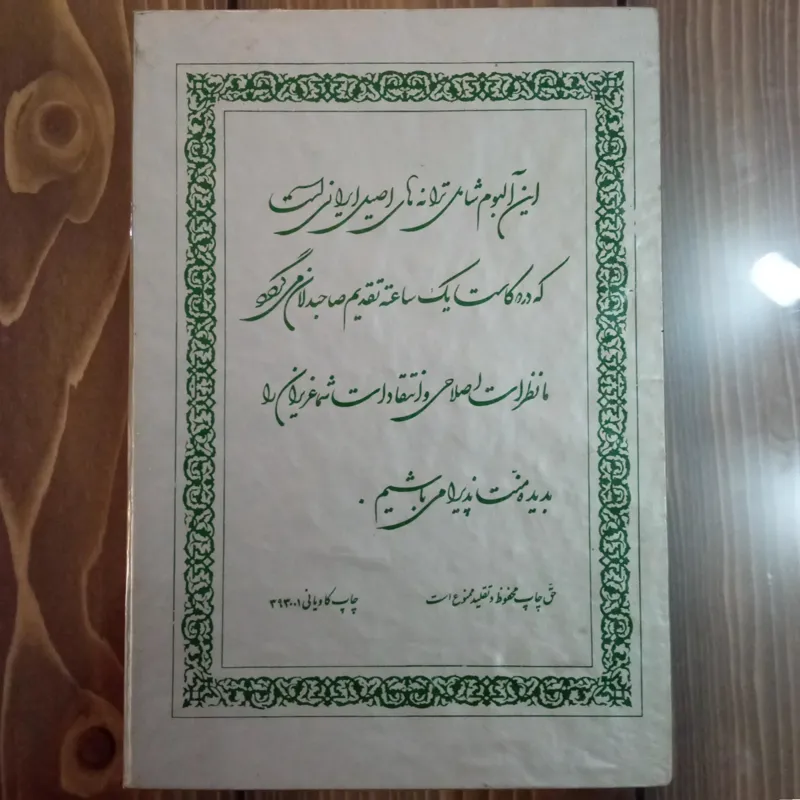 این آلبوم شامل ترانه های اصیل ایرانی است
که در ده کاست یک ساعته تقدیم صاحبدلان می گردد
ما نظرات اصلاحی و انتقادات شما عزیزان را
بدیده منت پذیرا می باشیم .
حق چاپ محفوظ و تقلید ممنوع است
چاپ کاویانی ۳۹۳۰۰۱